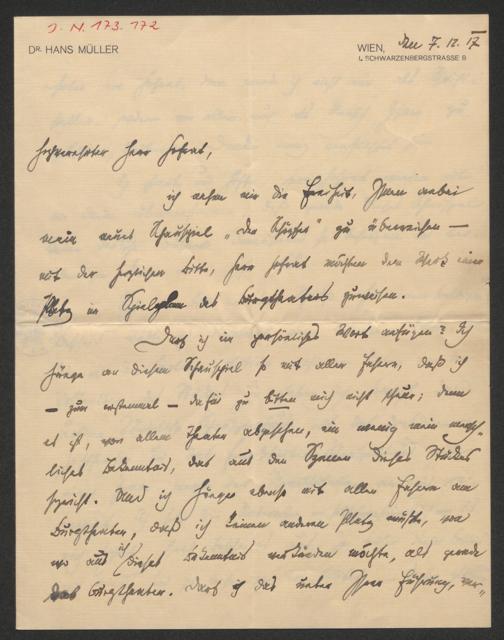 J. N. 173.172
DR. HANS MÜLLER
WIEN, den 7. 12. 17
I. SCHWARZENBERGSTRASSE 8
Hochverehrter Herr Hofrat,
ich nehme mir die Freiheit, Ihnen anbei
mein neues Schauspiel „Der Schöpfer" zu überreichen —
mit der herzlichen Bitte, Herr Hofrat möchten dem Werk einen
Platz im Spielplan des Burgtheaters zuweisen.
Darf ich ein persönliches Wort anfügen? Ich
hänge an diesem Schauspiel so mit allen Fasern, daß ich
— zum erstenmal — dafür zu bitten mich nicht scheue; denn
es ist, von allem Theater abgesehen, ein wenig mein mensch-
liches Bekenntnis, das aus den Szenen dieses Stückes
spricht. Und ich hänge ebenso mit allen Fasern am
Burgtheater, daß ich keinen anderen Platz wüßte, von
wo aus ich dieses Bekenntnis verkünden möchte, als gerade
das Burgtheater. Darf ich das unter Ihrer Führung, ver-